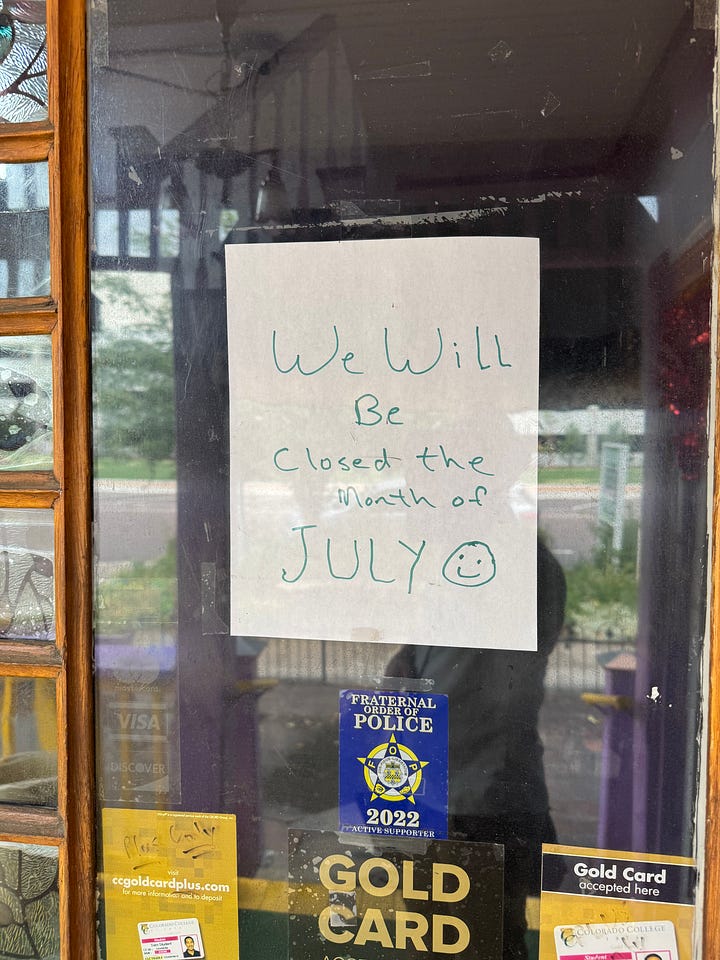 We Will
Be
Closed the
Month of
JULY
VISA
DISCOVER
FRATERNAL
ORDER OF
POLICE
F O P
2022
ACTIVE SUPPORTER
Plus Only
visit
ccgoldcardplus.com
for more information and to deposit
COLORADO COLLEGE
GOLD
CARD
Gold Card
accepted here
COLORADO COLLEGE
Student